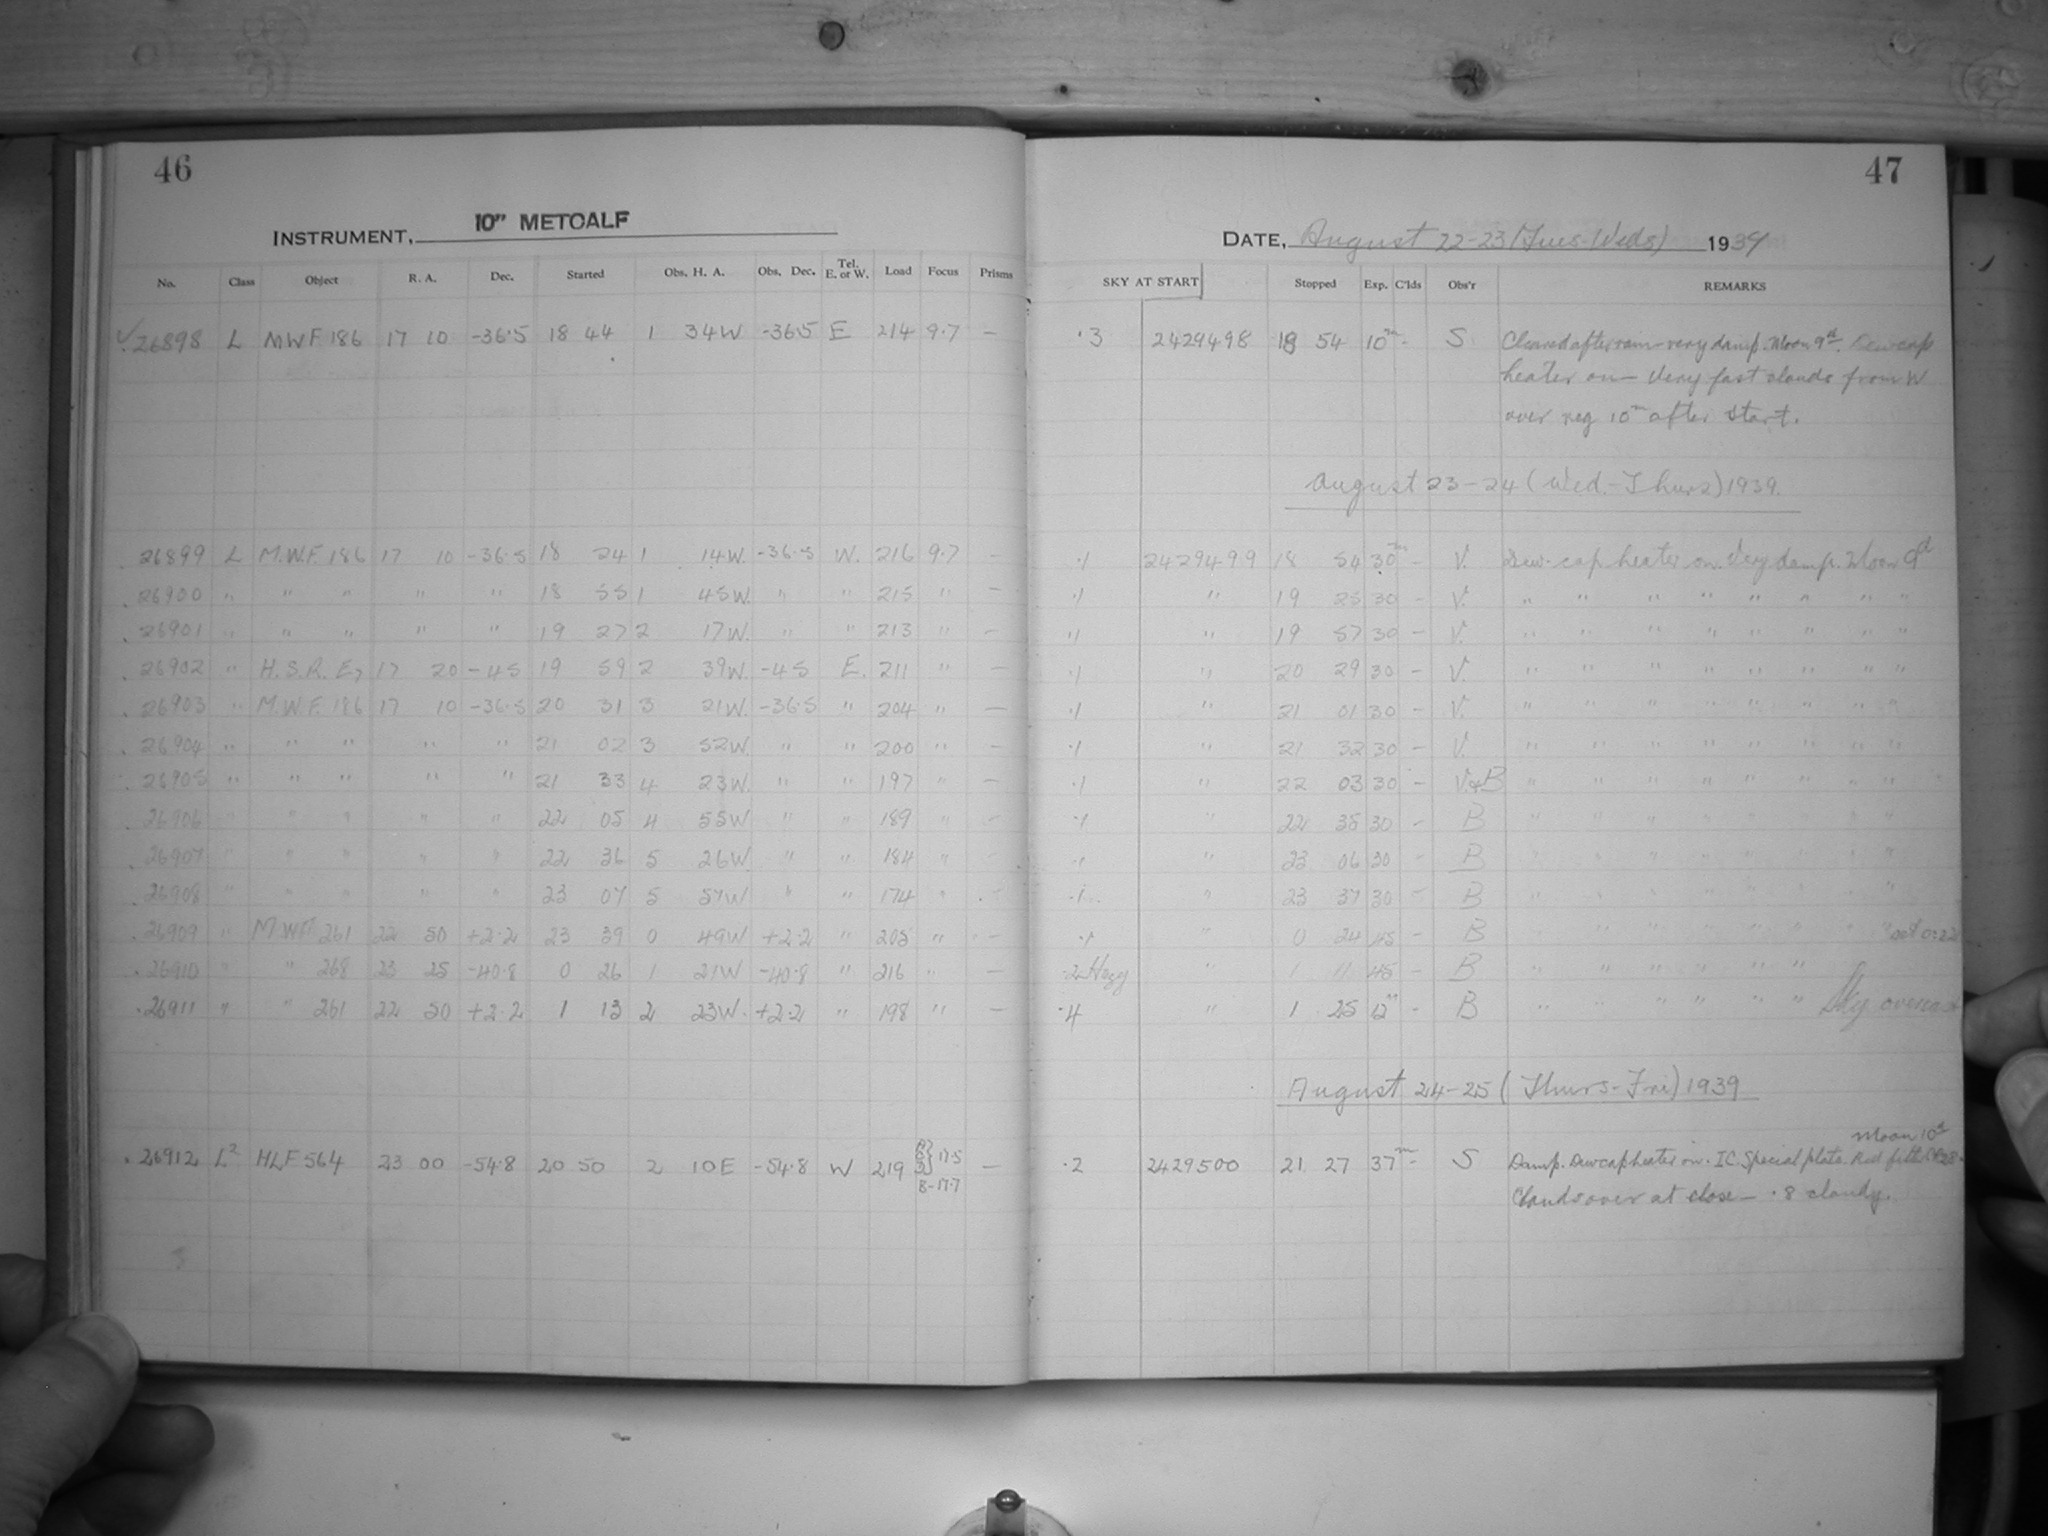 46
47
INSTRUMENT, 10" METCALF
DATE, August 22-23 (Tues-Weds) 1939
No. Class Object R. A. Dec. Started Obs. H. A. Obs. Dec. Tel. E. or W. Load Focus Prisms SKY AT START Stopped Exp. C'lds Obs'r REMARKS
√26898 L MWF 186 17 10 -36.5 18 44 1 34W -36.5 E 214 9.7 — .3 2429498 18 54 10m - S Cleared after rain - very damp. Moon 9d. Dewcap
heater on — Very fast clouds from W
over reg 10m after start.
August 23-24 (Wed.-Thurs) 1939.
26899 L M.W.F. 186 17 10 -36.5 18 24 1 14W. -36.5 W. 216 9.7 — .1 2429499 18 54 30m - V. Dew-cap heater on. Very damp. Moon 9d
26900 " " " " " 18 55 1 45W. " " 215 " — .1 " 19 25 30 - V. " " " " " " " "
26901 " " " " " 19 27 2 17W. " " 213 " — .1 " 19 57 30 - V. " " " " " " " "
26902 " H.S.R. E7 17 20 -45 19 59 2 39W. -45 E. 211 " — .1 " 20 29 30 - V. " " " " " " " "
26903 " M.W.F. 186 17 10 -36.5 20 31 3 21W. -36.5 " 204 " — .1 " 21 01 30 - V. " " " " " " " "
26904 " " " " " 21 02 3 52W. " " 200 " — .1 " 21 32 30 - V. " " " " " " " "
26905 " " " " " 21 33 4 23W. " " 197 " — .1 " 22 03 30 - V.&B " " " " " " " "
26906 " " " " " 22 05 4 55W " " 189 " — .1 " 22 35 30 - B " " " " " " " "
26907 " " " " " 22 36 5 26W " " 184 " — .1 " 23 06 30 - B " " " " " " " "
26908 " " " " " 23 07 5 57W " " 174 " — .1 " 23 37 30 - B " " " " " " " "
26909 " MWF 261 22 50 +2.2 23 39 0 49W +2.2 " 205 " — .1 " 0 24 45 - B " " " " " " "
26910 " " 268 23 25 -40.8 0 26 1 21W -40.8 " 216 " — .2 Hazy " 1 11 45 - B " " " " " "
26911 " " 261 22 50 +2.2 1 13 2 23W. +2.2 " 198 " — .4 " 1 25 12m - B " " " " " " Sky overcast
August 24-25 (Thurs-Fri) 1939
Moon 10d
26912 L2 HLF 564 23 00 -54.8 20 50 2 10E -54.8 W 219 17.5 — .2 2429500 21 27 37m - S Damp. Dewcap heater on. IC. Special plate. Red filter
B-17.7
Clouds over at close — .8 cloudy.